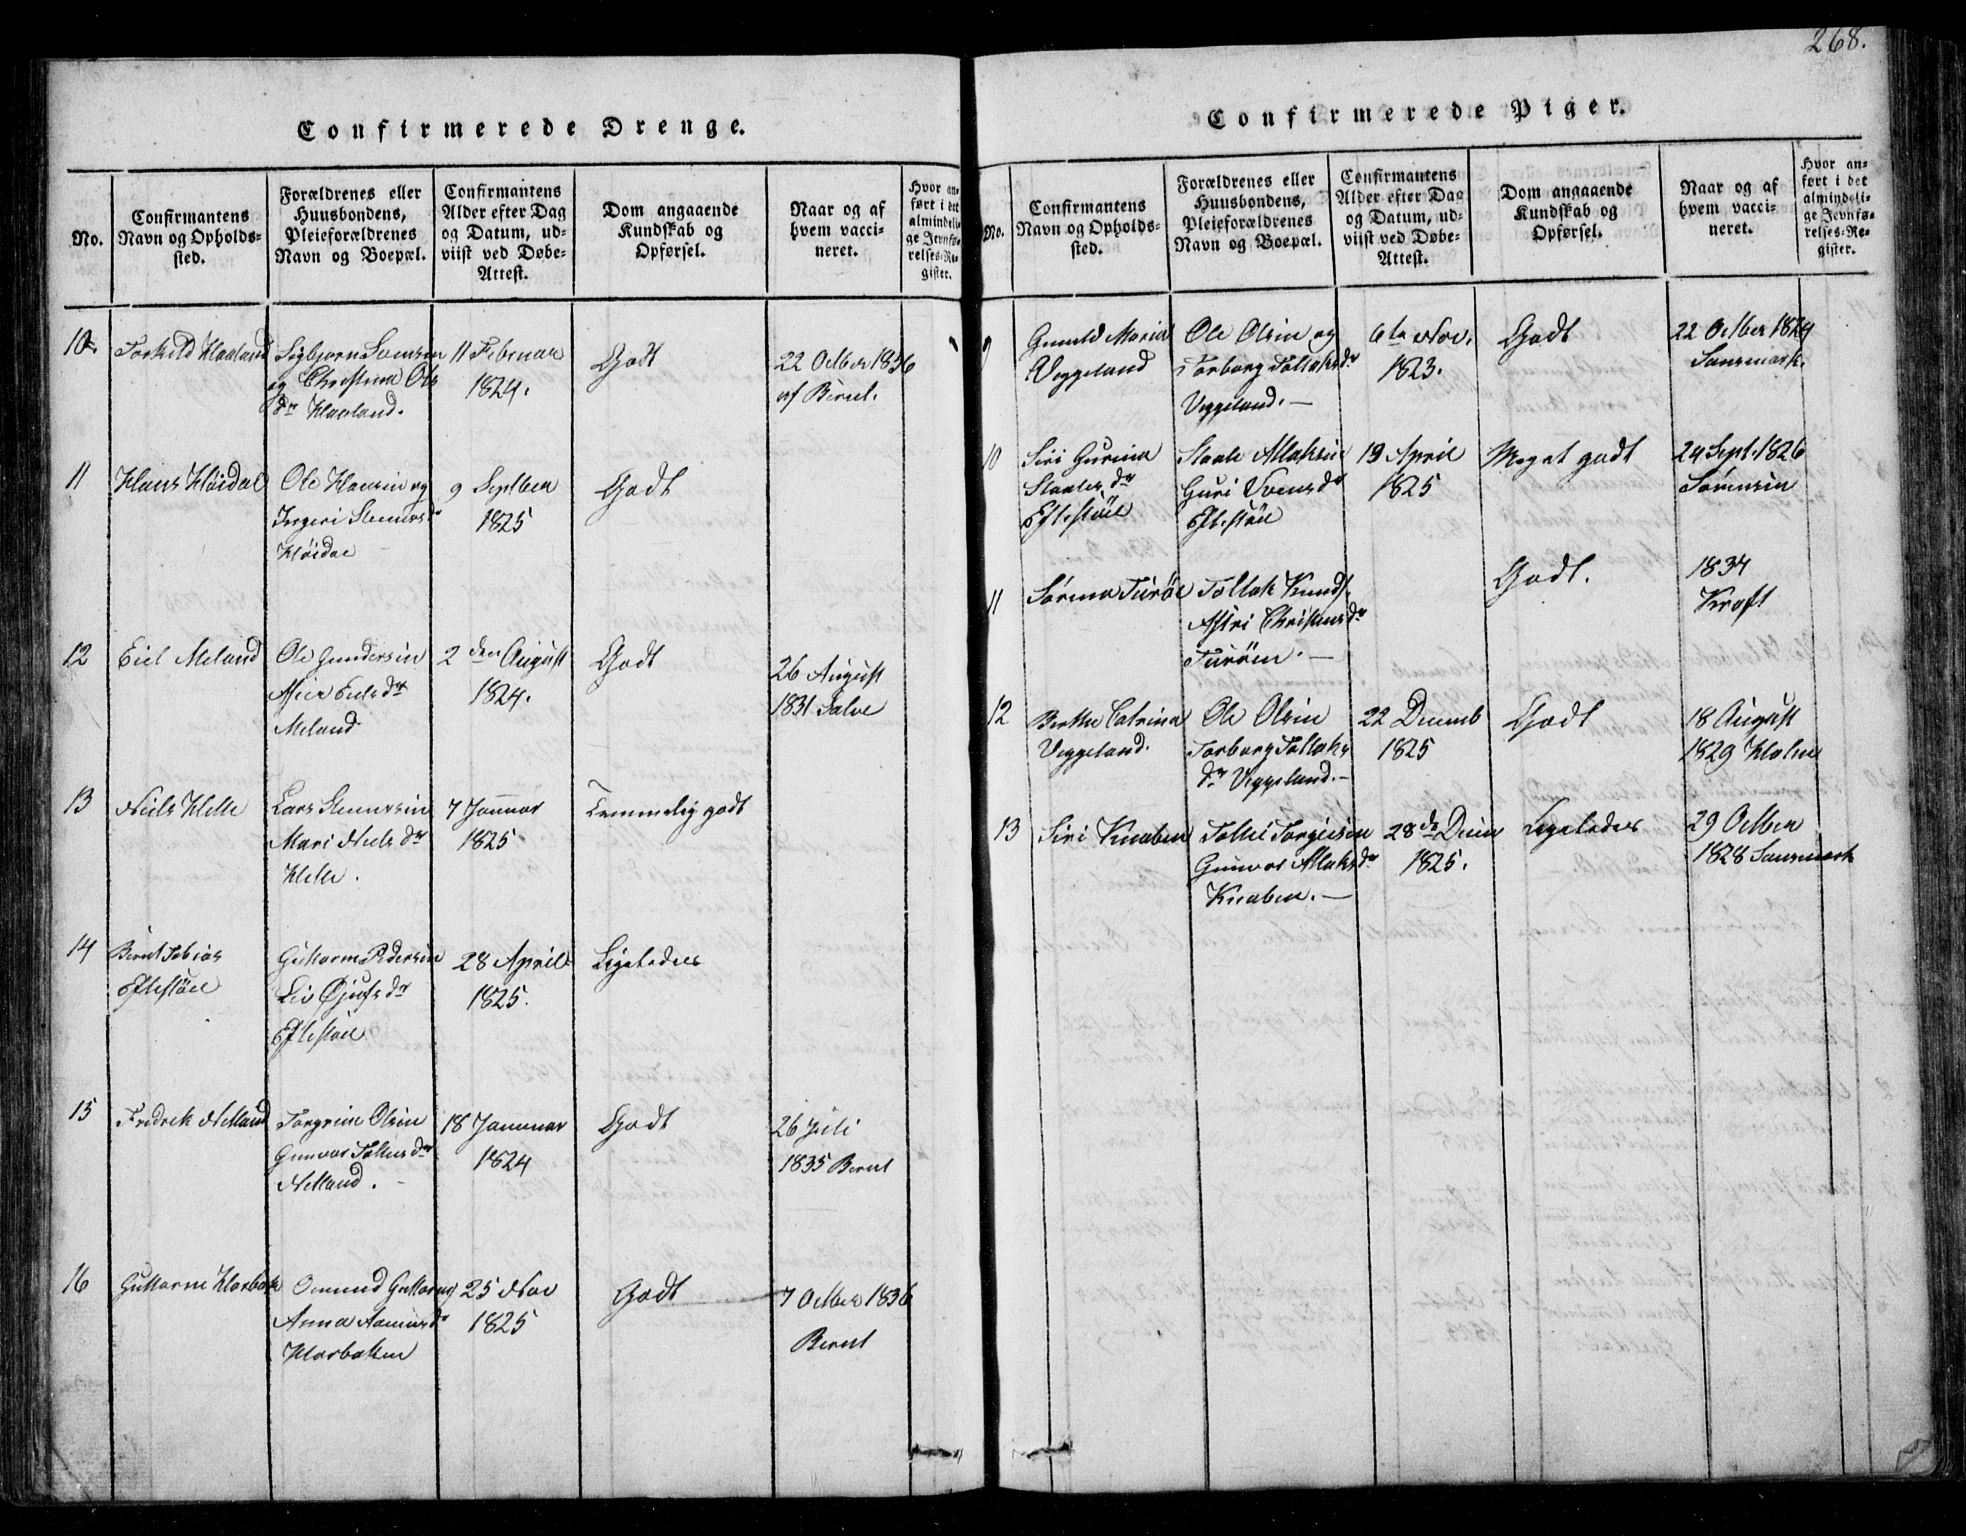 268.
Confirmerede Drenge.
No.
Confirmantens
Navn og Opholds-
sted.
Forældrenes eller
Huusbondens,
Pleieforældrenes
Navn og Boepæl.
Confirmantens
Alder efter Dag
og Datum, ud-
viist ved Døbe-
Attest.
Dom angaaende
Kundskab og
Opførsel.
Naar og af
hvem vacci-
neret.
Hvor an-
ført i det
almindeli-
ge Jevnfø-
relses-Re-
gister.
10
Torkild Haaland
Sigbjørn Svensen
og Christina Ols
dr Haaland.
11 Februar
1824.
Godt
22 Octber 1836
af Bernt.
11
Hans Høidal
Ole Hansen og
Ingeri
Høidal
9 Septber
1825
Godt
12
Eiel Meland
Ole Gundersen
Eiels dr
Meland
2 den August
1824.
Godt
26 August
1831 Salve
13
Niels Helle
Lars
Mari Niels dr
Helle.
7 Januar
1825
Temmelig godt
14
Bernt Tobias
Eftestøel
Guttorm Pedersen
Liv dr
Eftestøel
28 April
1825.
Ligeledes
15
Fredrek Netland
Torgrim Olsen
Gunvor dr
Netland.
18 Januar
1824
Godt
26 Juli
1835 Bernt
16
Guttorm Horbak
Omund Guttorms
Anna
Horbaken
25 Nov
1825
Godt
7 Octber 1836
Bernt
Confirmerede Piger.
No.
Confirmantens
Navn og Opholds-
sted.
Forældrenes eller
Huusbondens,
Pleieforældrenes
Navn og Boepæl.
Confirmantens
Alder efter Dag
og Datum, ud-
viist ved Døbe-
Attest.
Dom angaaende
Kundskab og
Opførsel.
Naar og af
hvem vacci-
neret.
Hvor an-
ført i det
almindeli-
ge Jevnfø-
relses-Re-
gister.
9
Gunuld Maria
Veggeland
Ole Olsen og
Torborg Tollaksdr
Veggeland.
6te Nov.
1823.
Godt
22 Octber 1824
Sansmark.
10
Siri Gurina
Staales dr
Eftestøel
Staale Atlaksen
Guri Svens dr
Eftestøel
19 April
1825
Meget godt
24 Sept. 1826
Sørensen
11
Sørina
Tollak Knuds.
Astri Christens dr
Godt.
1834
Kraft
12
Berthe Catrina
Veggeland.
Ole Olsen
Torborg Tollaks
dr Veggeland.
22 Decemb
1825
Godt
18 August
1829 Holm
13
Siri Knaben
Tollei Torgiersen
Gunvor Atlaks dr
Knaben.
28 de Decm
1825.
Ligeledes
29 Octber
1828 Sansmark